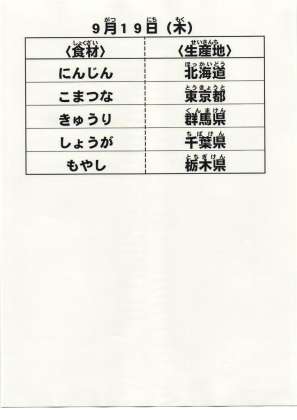 9月19日（木）
〈食材〉 〈生産地〉
にんじん 北海道
こまつな 東京都
きゅうり 群馬県
しょうが 千葉県
もやし 栃木県